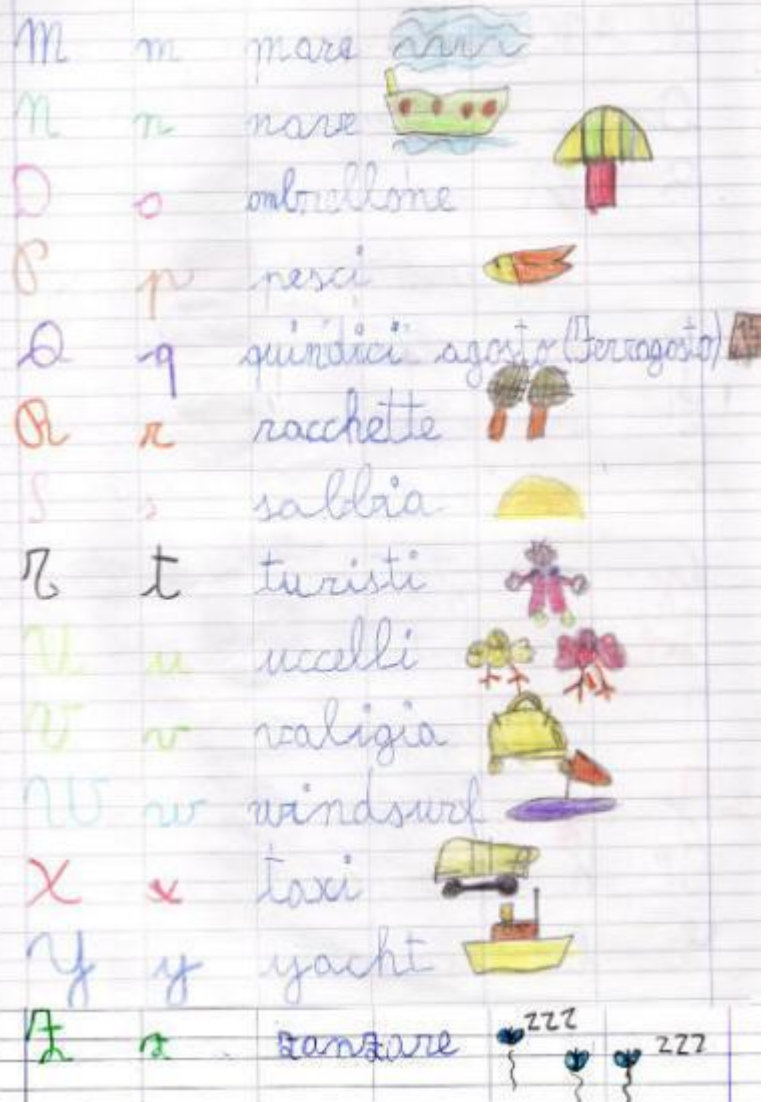 M m mare
N n nave
O o ombrellone
P p pesci
Q q quindici agosto (Ferragosto) 15
R r racchette
S s sabbia
T t turisti
U u uccelli
V v valigia
W w windsurf
X x taxi
Y y yacht
Z z zanzare zzz zzz